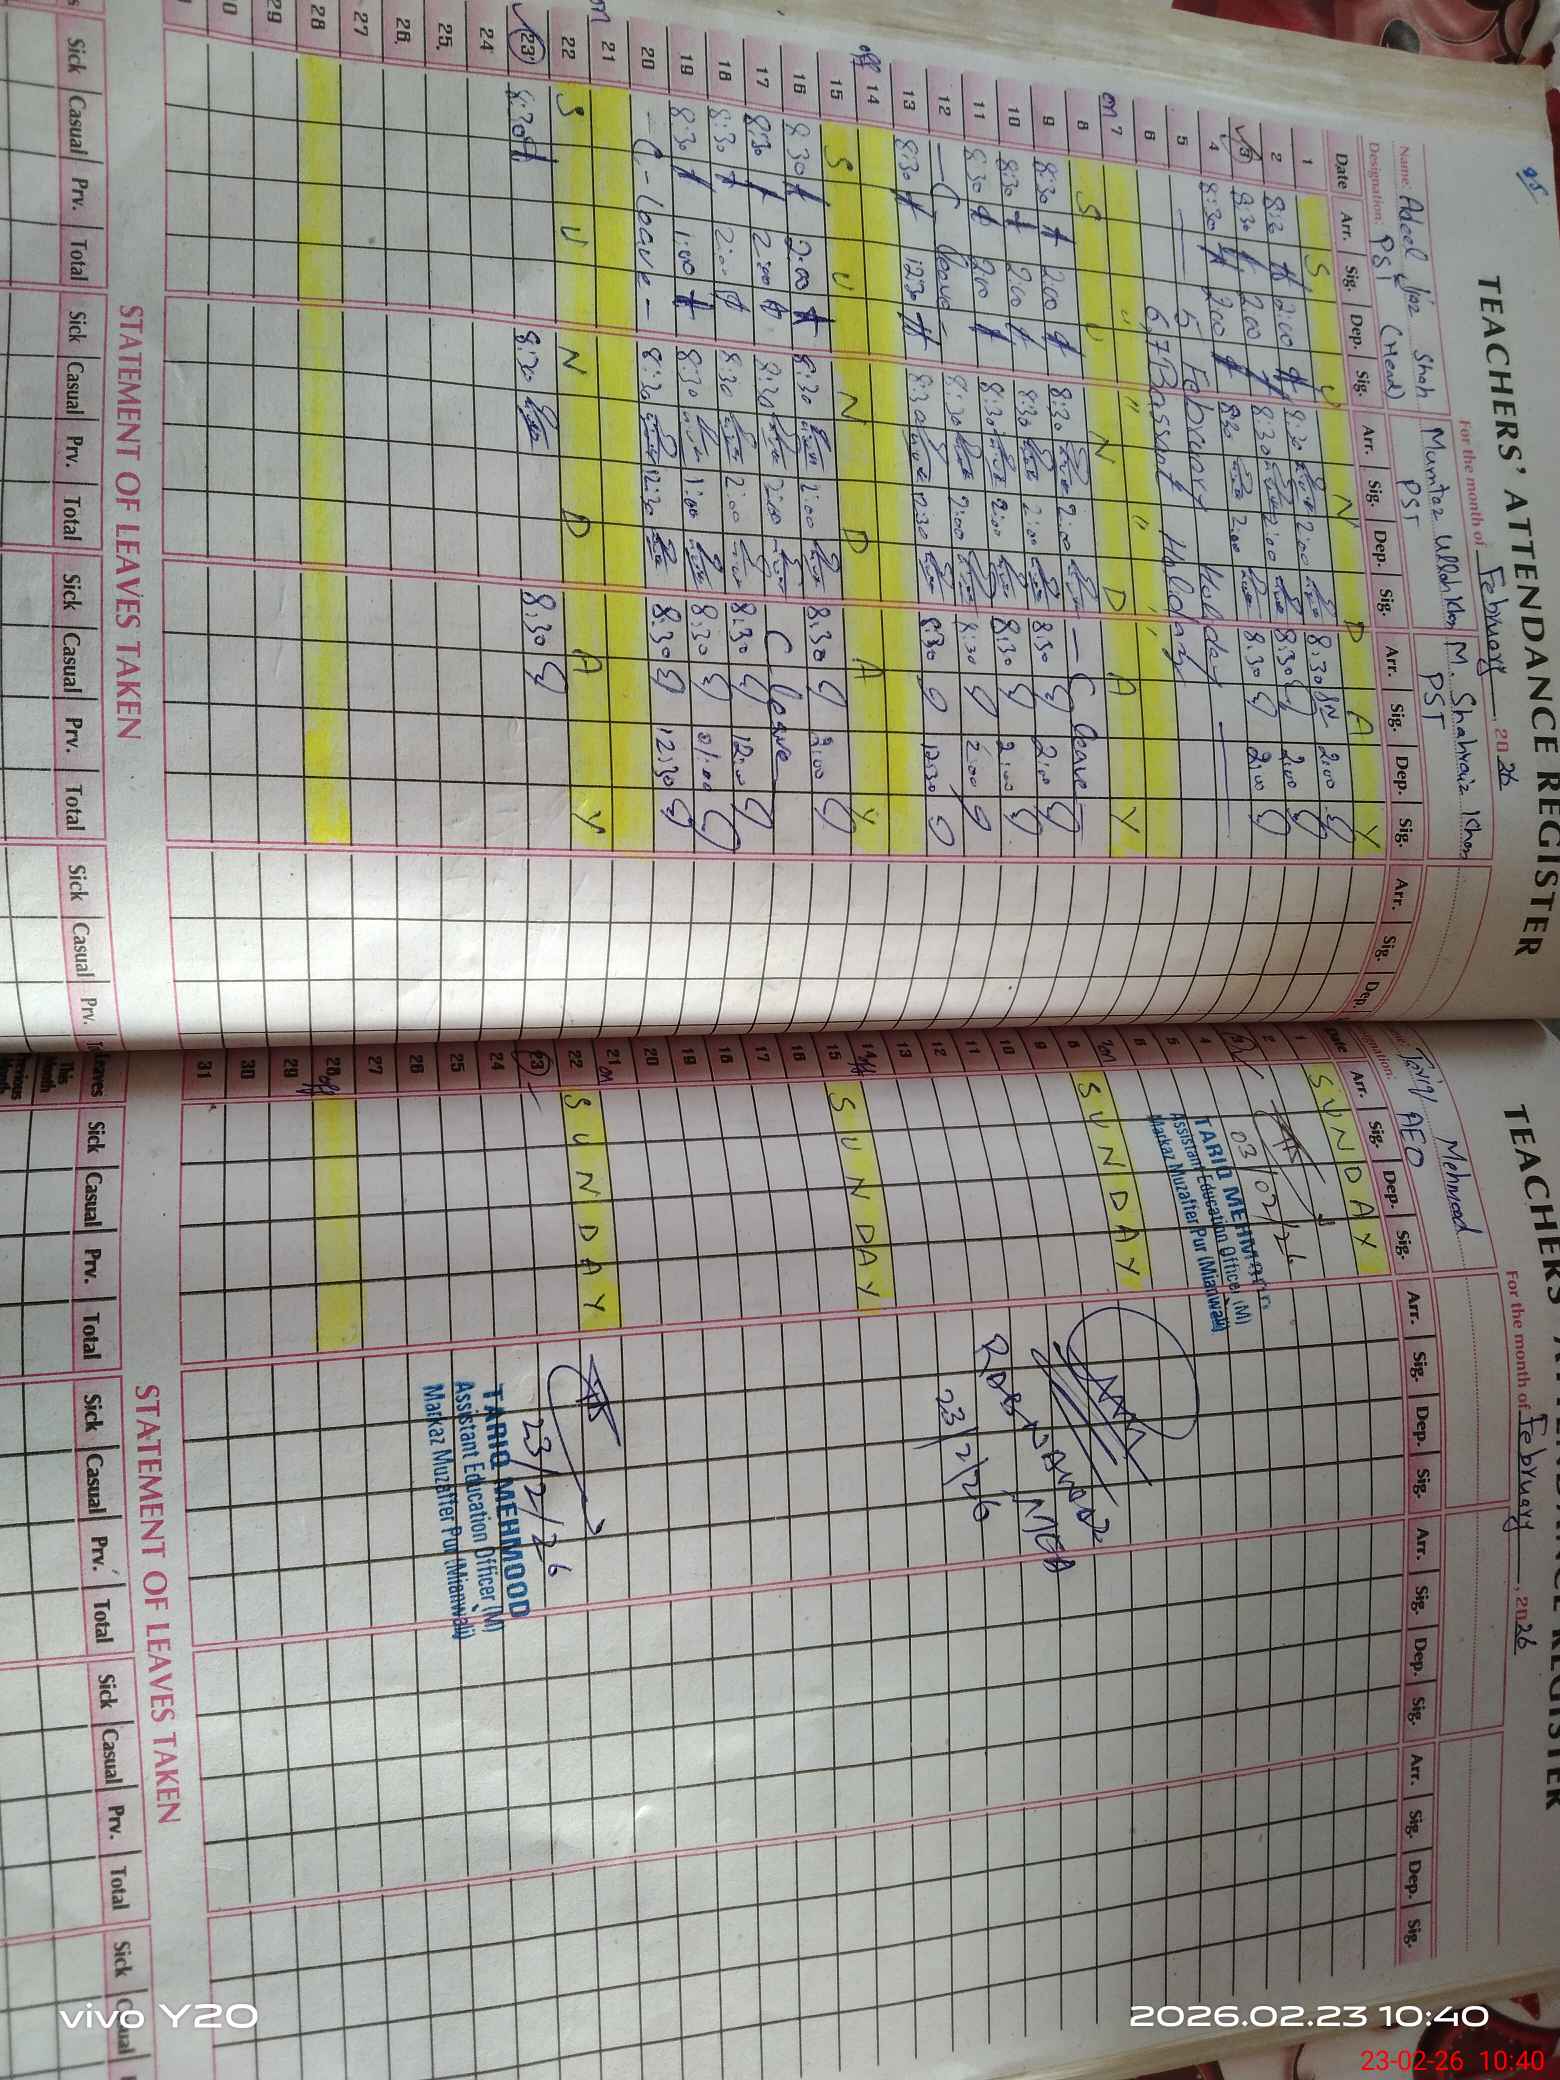 TEACHERS' ATTENDANCE REGISTER
For the month of February, 2026
Name: Adeel Ijaz Shah
Mumtaz Ullah Khan
M. Shahraiz Khan
Designation: PST (Head)
PST
PST
Date Arr. Sig. Dep. Sig. Arr. Sig. Dep. Sig. Arr. Sig. Dep. Sig. Arr. Sig. Dep.
1 S U N D A Y
2 8:30 2:00 8:30 2:00 8:30 2:00
3 8:30 2:00 8:30 2:00 8:30 2:00
4 8:30 2:00 8:30 2:00 8:30 2:00
5 5 February Holiday
6 6,7 Bassant Holiday
on 7 " " " "
8 S U N D A Y
9 8:30 2:00 8:30 2:00 C leave
10 8:30 2:00 8:30 2:00 8:30 2:00
11 8:30 2:00 8:30 2:00 8:30 2:00
12 C leave 8:30 2:00 8:30 2:00
13 8:30 12:30 8:30 12:30 8:30 12:30
off 14
15 S U N D A Y
16 8:30 2:00 8:30 2:00 8:30 2:00
17 8:30 2:00 8:30 2:00 C leave
18 8:30 2:00 8:30 2:00 8:30 12:00
19 8:30 1:00 8:30 1:00 8:30 01:00
20 C-leave 8:30 12:30 8:30 12:30
on 21
22 S U N D A Y
23 8:30 8:30 8:30
24
25
26
27
28
29
STATEMENT OF LEAVES TAKEN
Sick Casual Prv. Total Sick Casual Prv. Total Sick Casual Prv. Total Sick Casual Prv.
TEACHERS' ATTENDANCE REGISTER
For the month of February, 2026
Tariq Mehmood
AEO
Date Arr. Sig. Dep. Sig. Arr. Sig. Dep. Sig. Arr. Sig. Dep. Sig. Arr. Sig. Dep. Sig.
1 SUNDAY
2
3 03/02/26
TARIQ MEHMOOD
Assistant Education Officer (M)
Markaz Muzaffer Pur (Mianwali)
4
5
6
7 on
8 SUNDAY
9
10
MEA
23/2/26
11
12
13
14 off
15 SUNDAY
16
17
18
19
20
21 on
22 SUNDAY
23 23/2/26
TARIQ MEHMOOD
Assistant Education Officer (M)
Markaz Muzaffer Pur (Mianwali)
24
25
26
27
28 off
29
30
31
STATEMENT OF LEAVES TAKEN
Leaves Sick Casual Prv. Total Sick Casual Prv. Total Sick Casual Prv. Total Sick
This Month
Previous Month
vivo Y20
2026.02.23 10:40
23-02-26 10:40